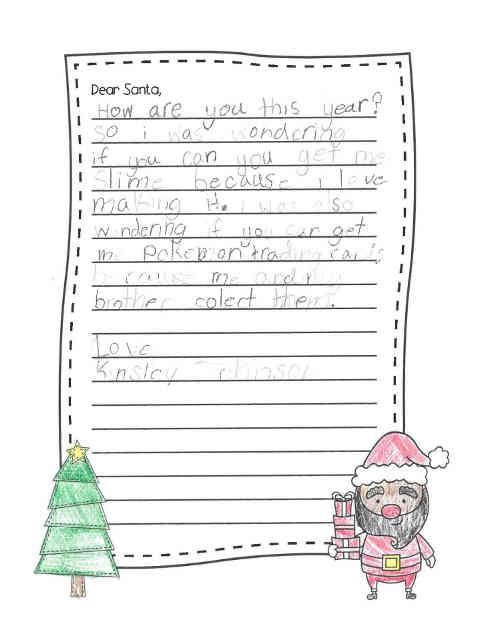 Dear Santa,
How are you this year?
So i was wondering
if you can you get me
Slime because i love
making it. i was also
wondering if you can get
me Pokemon trading cards
because me and my
brother colect them.
Love
Kinsley Johnson